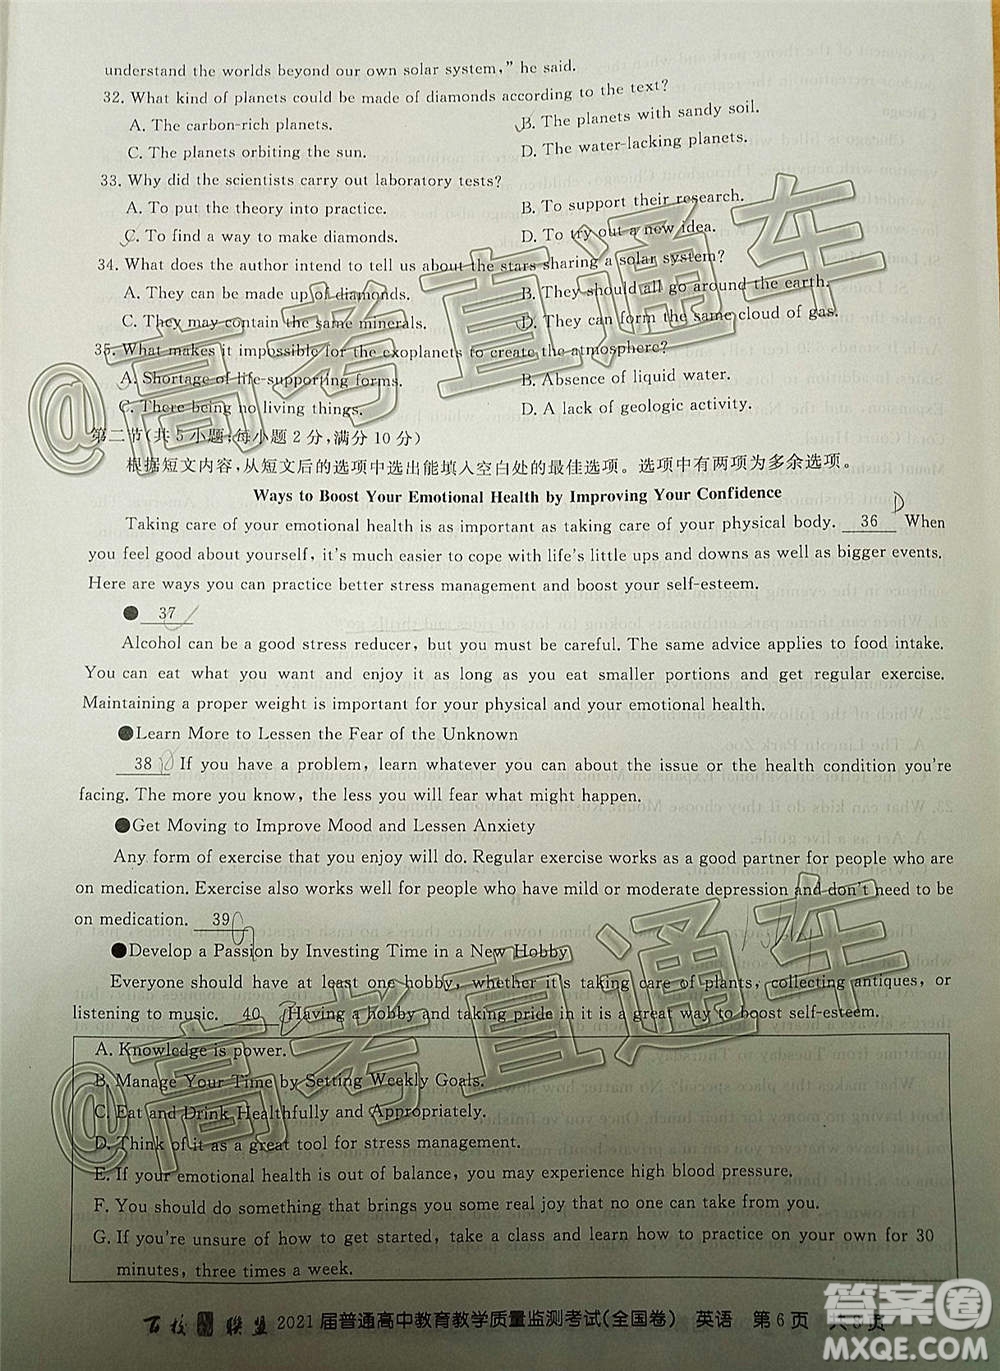 understand the worlds beyond our own solar system,” he said.
32. What kind of planets could be made of diamonds according to the text?
A. The carbon-rich planets.
B. The planets with sandy soil.
C. The planets orbiting the sun.
D. The water-lacking planets.
33. Why did the scientists carry out laboratory tests?
A. To put the theory into practice.
B. To support their research.
C. To find a way to make diamonds.
D. To try out a new idea.
34. What does the author intend to tell us about the stars sharing a solar system?
A. They can be made up of diamonds.
B. They should all go around the earth.
C. They may contain the same minerals.
D. They can form the same cloud of gas.
35. What makes it impossible for the exoplanets to create the atmosphere?
A. Shortage of life-supporting forms.
B. Absence of liquid water.
C. There being no living things.
D. A lack of geologic activity.
第二节(共5小题;每小题2分,满分10分)
根据短文内容,从短文后的选项中选出能填入空白处的最佳选项。选项中有两项为多余选项。
Ways to Boost Your Emotional Health by Improving Your Confidence
Taking care of your emotional health is as important as taking care of your physical body. 36 D When
you feel good about yourself, it's much easier to cope with life's little ups and downs as well as bigger events.
Here are ways you can practice better stress management and boost your self-esteem.
●37
Alcohol can be a good stress reducer, but you must be careful. The same advice applies to food intake.
You can eat what you want and enjoy it as long as you eat smaller portions and get regular exercise.
Maintaining a proper weight is important for your physical and your emotional health.
●Learn More to Lessen the Fear of the Unknown
38 If you have a problem, learn whatever you can about the issue or the health condition you're
facing. The more you know, the less you will fear what might happen.
●Get Moving to Improve Mood and Lessen Anxiety
Any form of exercise that you enjoy will do. Regular exercise works as a good partner for people who are
on medication. Exercise also works well for people who have mild or moderate depression and don't need to be
on medication. 39
●Develop a Passion by Investing Time in a New Hobby
Everyone should have at least one hobby, whether it's taking care of plants, collecting antiques, or
listening to music. 40 Having a hobby and taking pride in it is a great way to boost self-esteem.
A. Knowledge is power.
B. Manage Your Time by Setting Weekly Goals.
C. Eat and Drink Healthfully and Appropriately.
D. Think of it as a great tool for stress management.
E. If your emotional health is out of balance, you may experience high blood pressure.
F. You should do something that brings you some real joy that no one can take from you.
G. If you're unsure of how to get started, take a class and learn how to practice on your own for 30
minutes, three times a week.
百校联盟 2021届普通高中教育教学质量监测考试(全国卷) 英语 第6页 共8页
@高考直通车
@高考直通车
答案圈
MXQE.COM